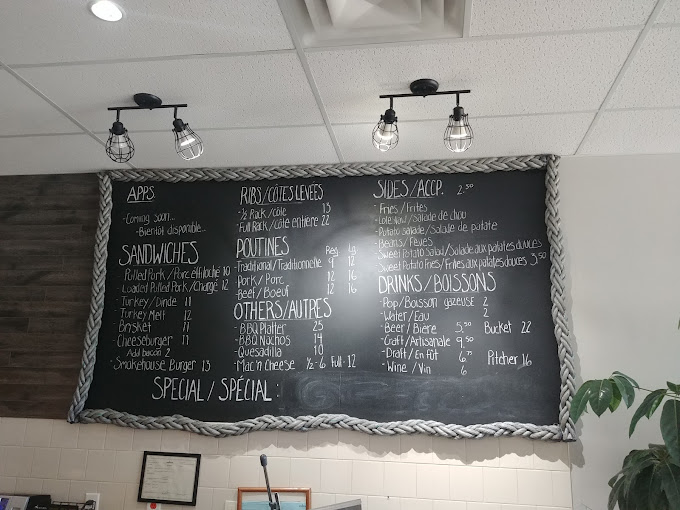 APPS
-Coming soon...
-Bientôt disponible...
SANDWICHES
-Pulled Pork/Porc éffiloché 10
-Loaded Pulled Pork/Chargé 12
-Turkey/Dinde 11
-Turkey Melt 12
-Brisket 11
-Cheeseburger 11
Add bacon 2
-Smokehouse Burger 13
RIBS/CÔTES LEVÉES
-½ Rack/côte 13
-Full Rack/côte entière 22
POUTINES Reg Lg
-Traditional/Traditionnelle 9 12
-Pork/Porc 12 16
-Beef/Boeuf 12 16
OTHERS/AUTRES
-BBQ Platter 25
-BBQ Nachos 14
-Quesadilla 10
-Mac'n Cheese ½-6 Full-12
SIDES/ACCP. 2.50
-Fries/Frites
-Cole slaw/Salade de chou
-Potato salade/Salade de patate
-Beans/Feves
-Sweet Potato Salad/Salade aux patates douces
-Sweet Potato Fries/Frites aux patates douces 3.50
DRINKS/BOISSONS
-Pop/Boisson gazeuse 2
-Water/Eau 2
-Beer/Bière 5.50 Bucket 22
-Craft/Artisanale 9.50
-Draft/En fût 6.75 Pitcher 16
-Wine/Vin 6
SPECIAL/SPÉCIAL: